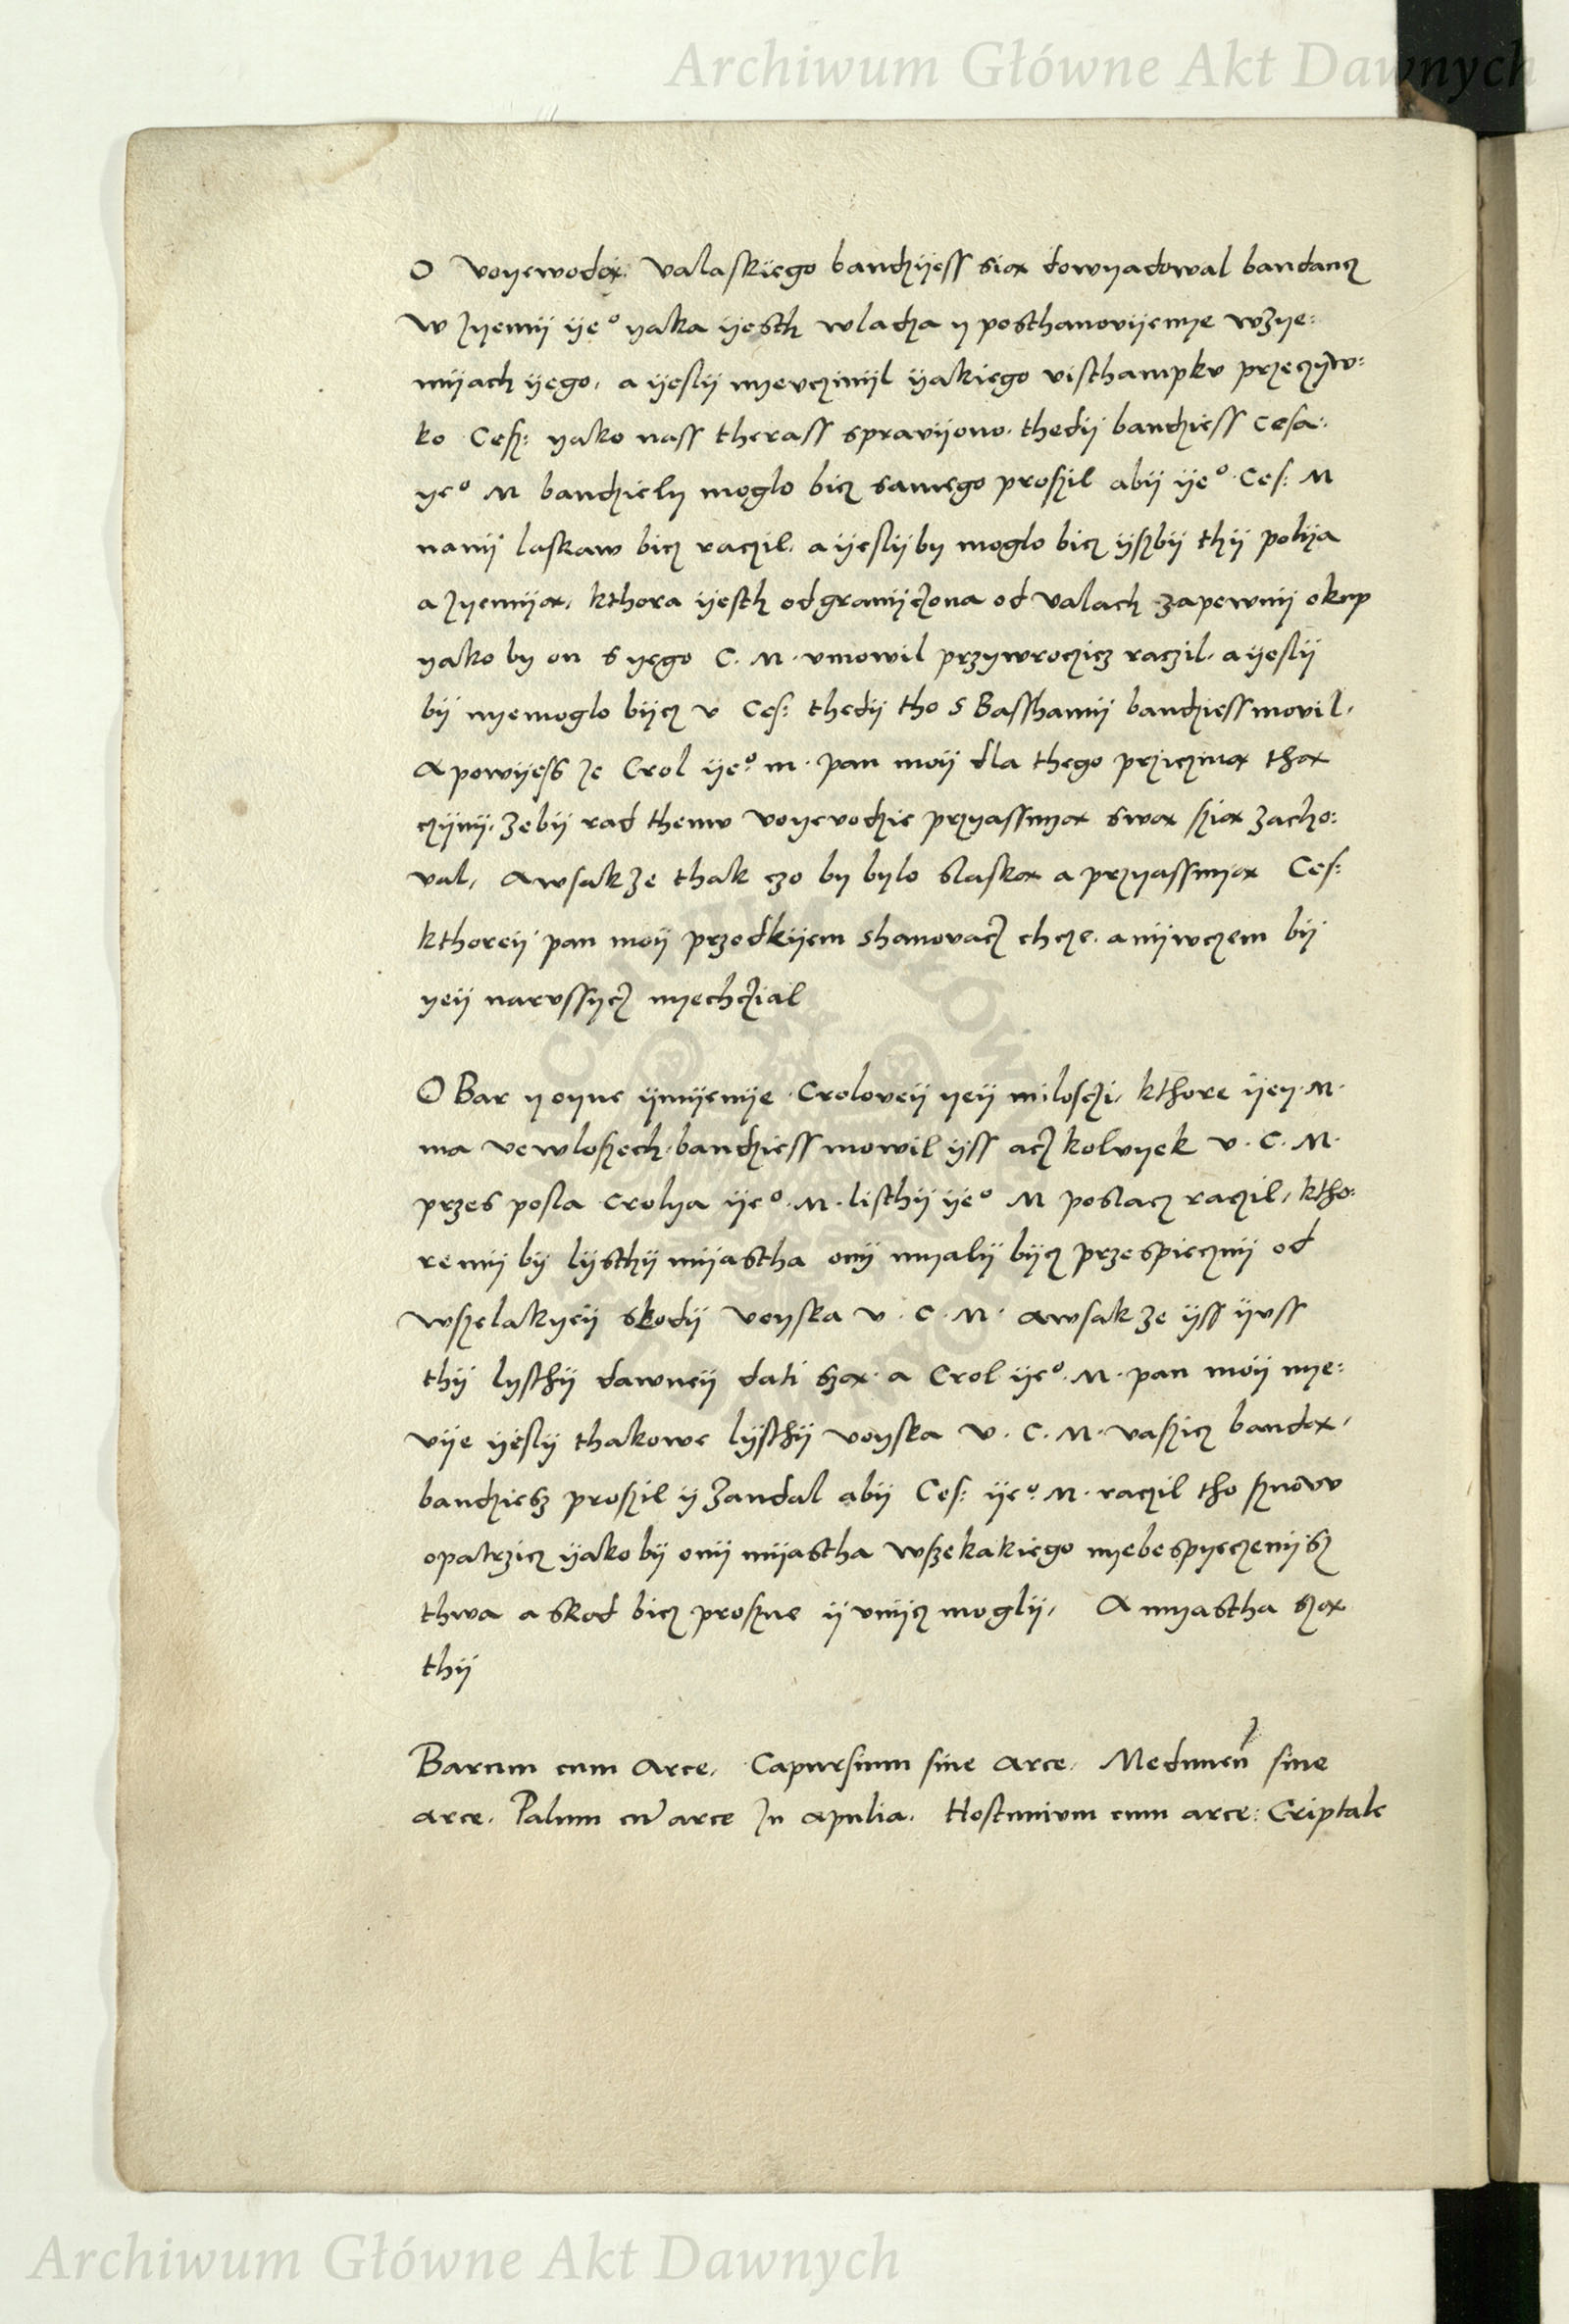 Archiwum Główne Akt Dawnych
O voyewodą Valaskiego bandzÿess sią dowyadowal bandancz
w zyemÿ ÿe° yaka ÿesth wladza y posthanovÿenye wzye:
mÿach ÿego, a ÿeslÿ nyevczinÿl ÿakiego visthampkv przeczyw:
ko Cesz: yako nass therass spravÿono. thedÿ bandziess Cesa:
ye° M bandziely moglo bicz samego proszil abÿ ÿe° Ces: M
namÿ laskaw bicz raczil. a ÿeslÿ by moglo bicz ÿszbÿ thÿ polya
a zyemÿą, kthora ÿesth odgranÿczona od Valach zapewnÿ okup
yako by on s yego C. M. vmowil przywroczicz raczil. a ÿeslÿ
bÿ nyemoglo bÿcz v Ces: thedÿ tho s Basshamÿ bandziess movil,
A powÿess ze Crol ÿe° m. pan moÿ dla thego przicziną thą
czÿnÿ. zebÿ rad themv voyevodzie przyassnyą swą szią zacho:
val, Awsakze thak czo by bylo slaską a przyassnyą Ces:
kthoreÿ pan moÿ przodkÿem shanovacz chcze. anÿwczem bÿ
yeÿ narvssycz nyechczial
O Bar y oyne ÿmÿenye Croloveÿ yeÿ milosczi, kthore ÿey. M.
ma vewloszech. bandziess mowil ÿss acz kolvyek v. C. M.
przes posla Crolya ÿe°. M. listhÿ ÿe° M poslacz raczil, ktho:
remÿ bÿ lÿsthÿ mÿastha onÿ myalÿ bÿcz przespiecznÿ od
wszelakyeÿ skodÿ voyska v. C. M. awsakze ÿss ÿvss
thÿ lysthÿ dawneÿ dati szą. a Crol ÿe°. M. pan moÿ nye:
vÿe ÿeslÿ thakowe lÿsthÿ voyska v. C. M. vaszicz bandą,
bandziesz proszil ÿ zandal abÿ Ces: ÿe°. M. raczil tho sznovv
opatrzicz ÿako bÿ onÿ mÿastha wszekakiego nyebespyeczenÿsz
thwa a skod bicz proszne ÿ vnÿcz moglÿ, A myastha szą
thÿ
Barum cum Arce, Capursium sine Arce. sine
arce. Palum cu̅ arce In apulia. Hostunium cum arce: Criptale
Archiwum Główne Akt Dawnych